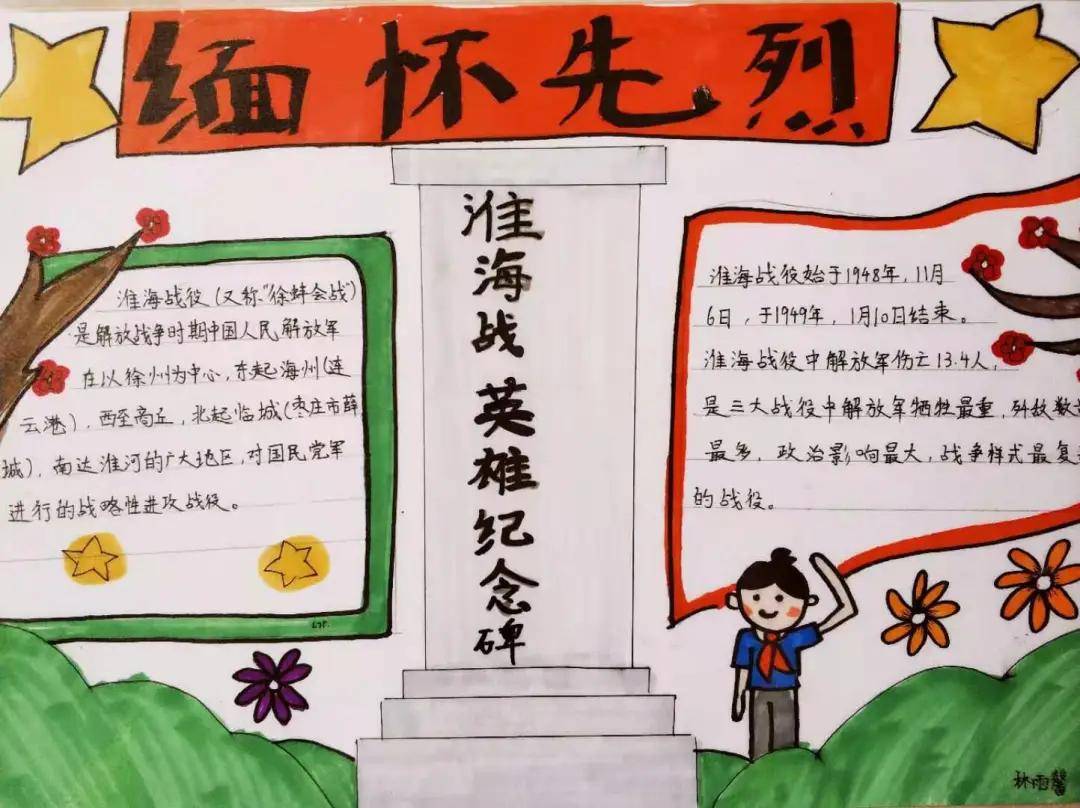 缅怀先烈
淮海战英雄纪念碑
淮海战役(又称"徐蚌会战")
是解放战争时期中国人民解放军
在以徐州为中心,东起海州(连
云港),西至商丘,北起临城(枣庄市薛
城),南达淮河的广大地区,对国民党军
进行的战略性进攻战役。
淮海战役始于1948年,11月
6日,于1949年,1月10日结束。
淮海战役中解放军伤亡13.4人,
是三大战役中解放军牺牲最重,歼敌数
最多,政治影响最大,战争样式最复
的战役。
林雨馨